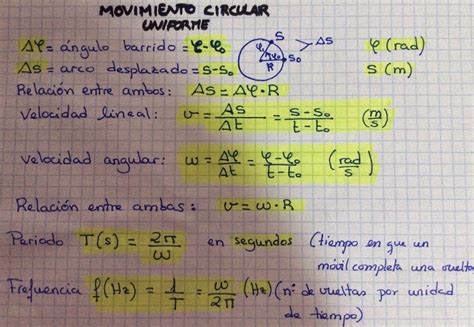 MOVIMIENTO CIRCULAR
UNIFORME
Δφ = ángulo barrido = φ-φ₀
φ (rad)
Δs = arco desplazado = s-s₀
s (m)
S
φ
φ₀
R
S₀
Δs
Relación entre ambos: Δs = Δφ·R
Velocidad lineal: v = Δs/Δt = s-s₀/t-t₀ (m/s)
Velocidad angular: ω = Δφ/Δt = φ-φ₀/t-t₀ (rad/s)
Relación entre ambas: v = ω·R
Periodo T(s) = 2π/ω en segundos (tiempo en que un
móvil completa una vuelta
Frecuencia f(Hz) = 1/T = ω/2π (Hz) (nº de vueltas por unidad
de tiempo)